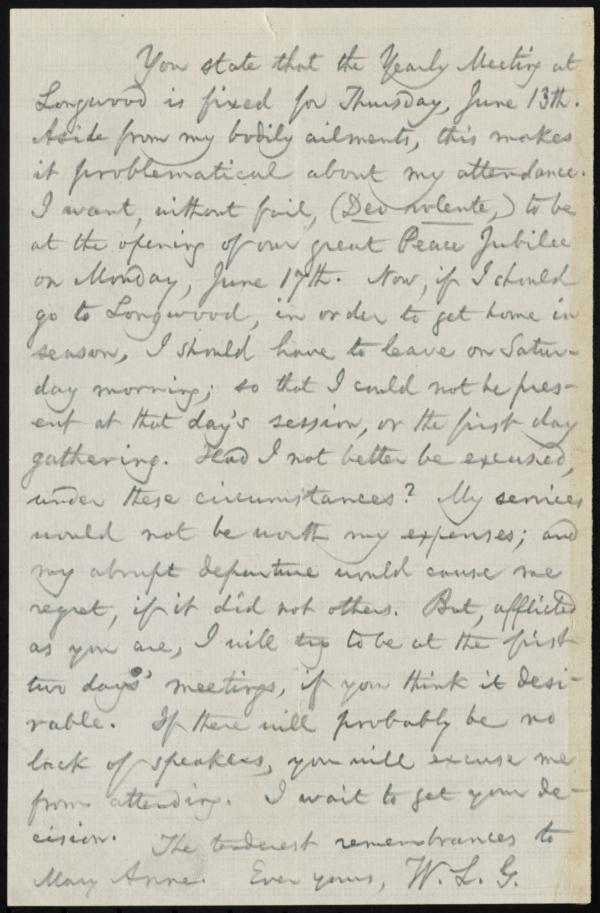 You state that the Yearly Meeting at
Longwood is fixed for Thursday, June 13th.
Aside from my bodily ailments, this makes
it problematical about my attendance.
I want, without fail, (Deo volente,) to be
at the opening of our great Peace Jubilee
on Monday, June 17th. Now, if I should
go to Longwood, in order to get home in
season, I should have to leave on Satur-
day morning; so that I could not be pres-
ent at that day's session, or the first day
gathering. Had I not better be excused,
under these circumstances? My services
would not be worth my expenses; and
my abrupt departure would cause me
regret, if it did not others. But, afflicted
as you are, I will try to be at the first
two days' meetings, if you think it desi-
rable. If there will probably be no
lack of speakers, you will excuse me
from attending. I wait to get your de-
cision. The tenderest remembrances to
Mary Anne. Ever yours, W. L. G.